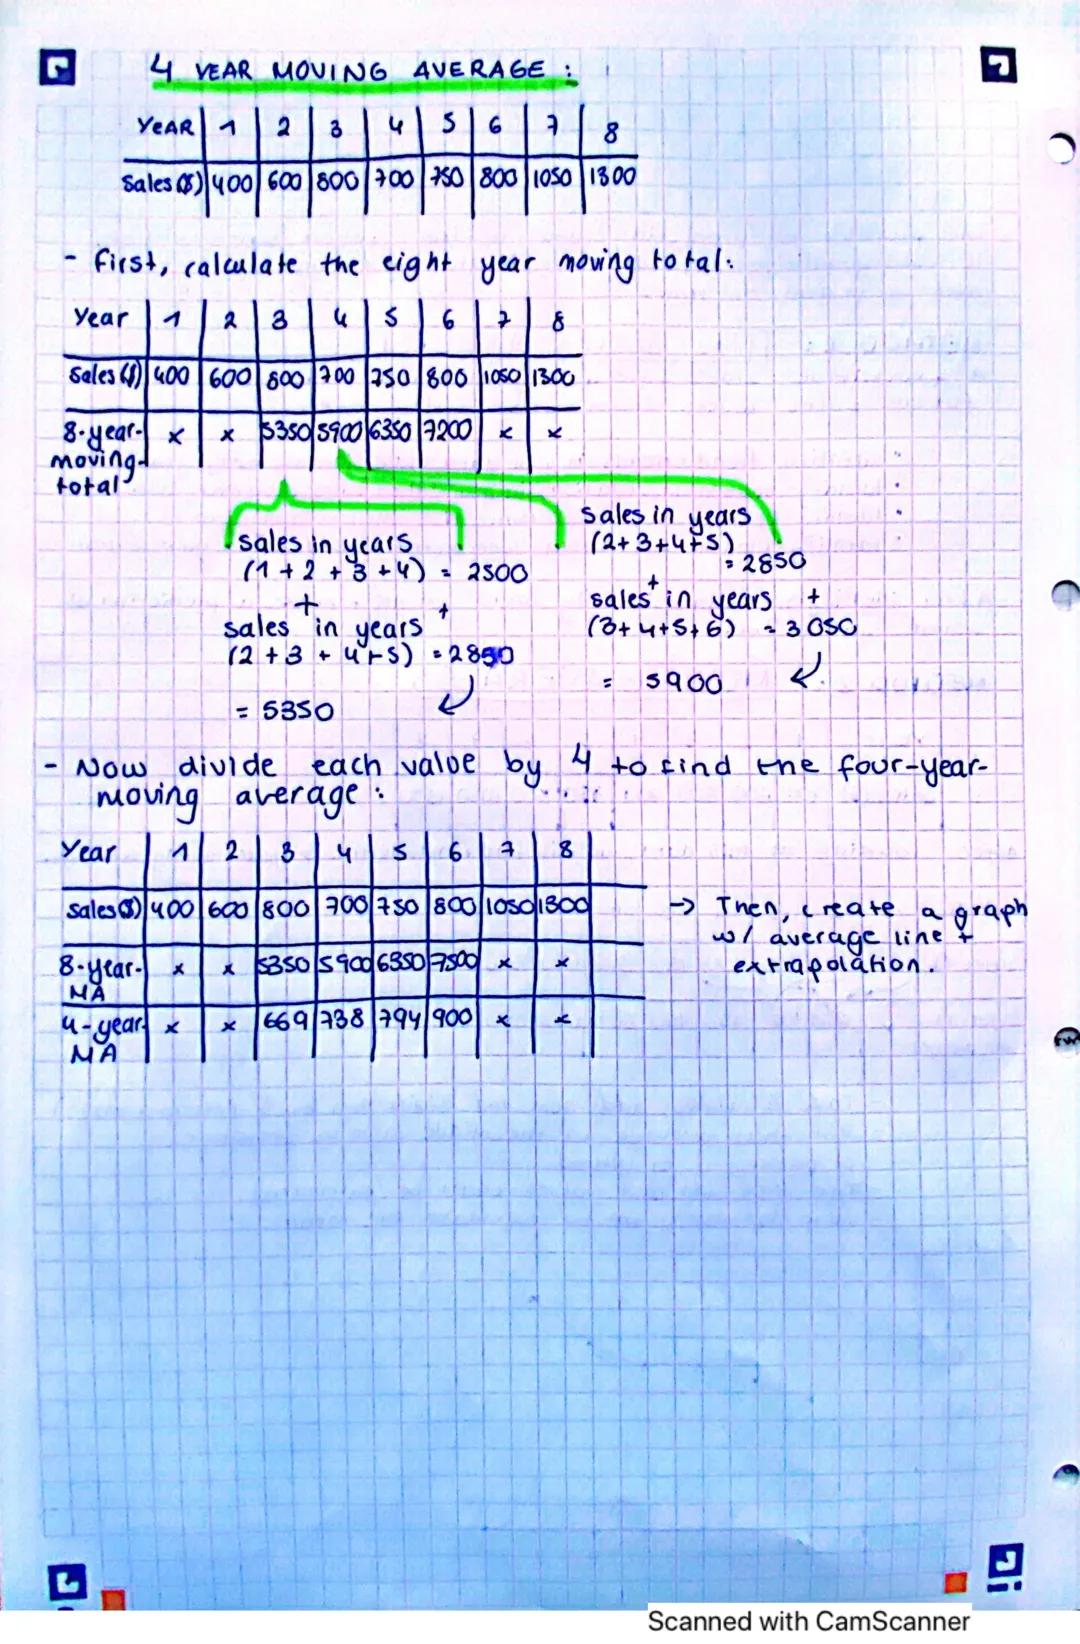 4 YEAR MOVING AVERAGE :
YEAR 1 2 3 4 5 6 7 8
Sales ($) 400 600 800 700 750 800 1050 1300
- First, calculate the eight year moving total:
Year 1 2 3 4 5 6 7 8
Sales ($) 400 600 800 700 750 800 1050 1300
8-year- x x 5350 5900 6350 7200 x x
moving-
total
sales in years
(1 + 2 + 3 + 4) = 2500
+ +
sales in years
(2 + 3 + 4 + 5) = 2850
= 5350
Sales in years
(2+3+4+5)
= 2850
+ +
sales in years
(3+4+5+6) = 3050
= 5900
- Now divide each value by 4 to find the four-year-
moving average :
Year 1 2 3 4 5 6 7 8
Sales ($) 400 600 800 700 750 800 1050 1300
8-year- x x 5350 5900 6350 7500 x x
MA
4-year- x x 669 738 794 900 x x
MA
→ Then, create a graph
w/ average line +
extrapolation.
Scanned with CamScanner